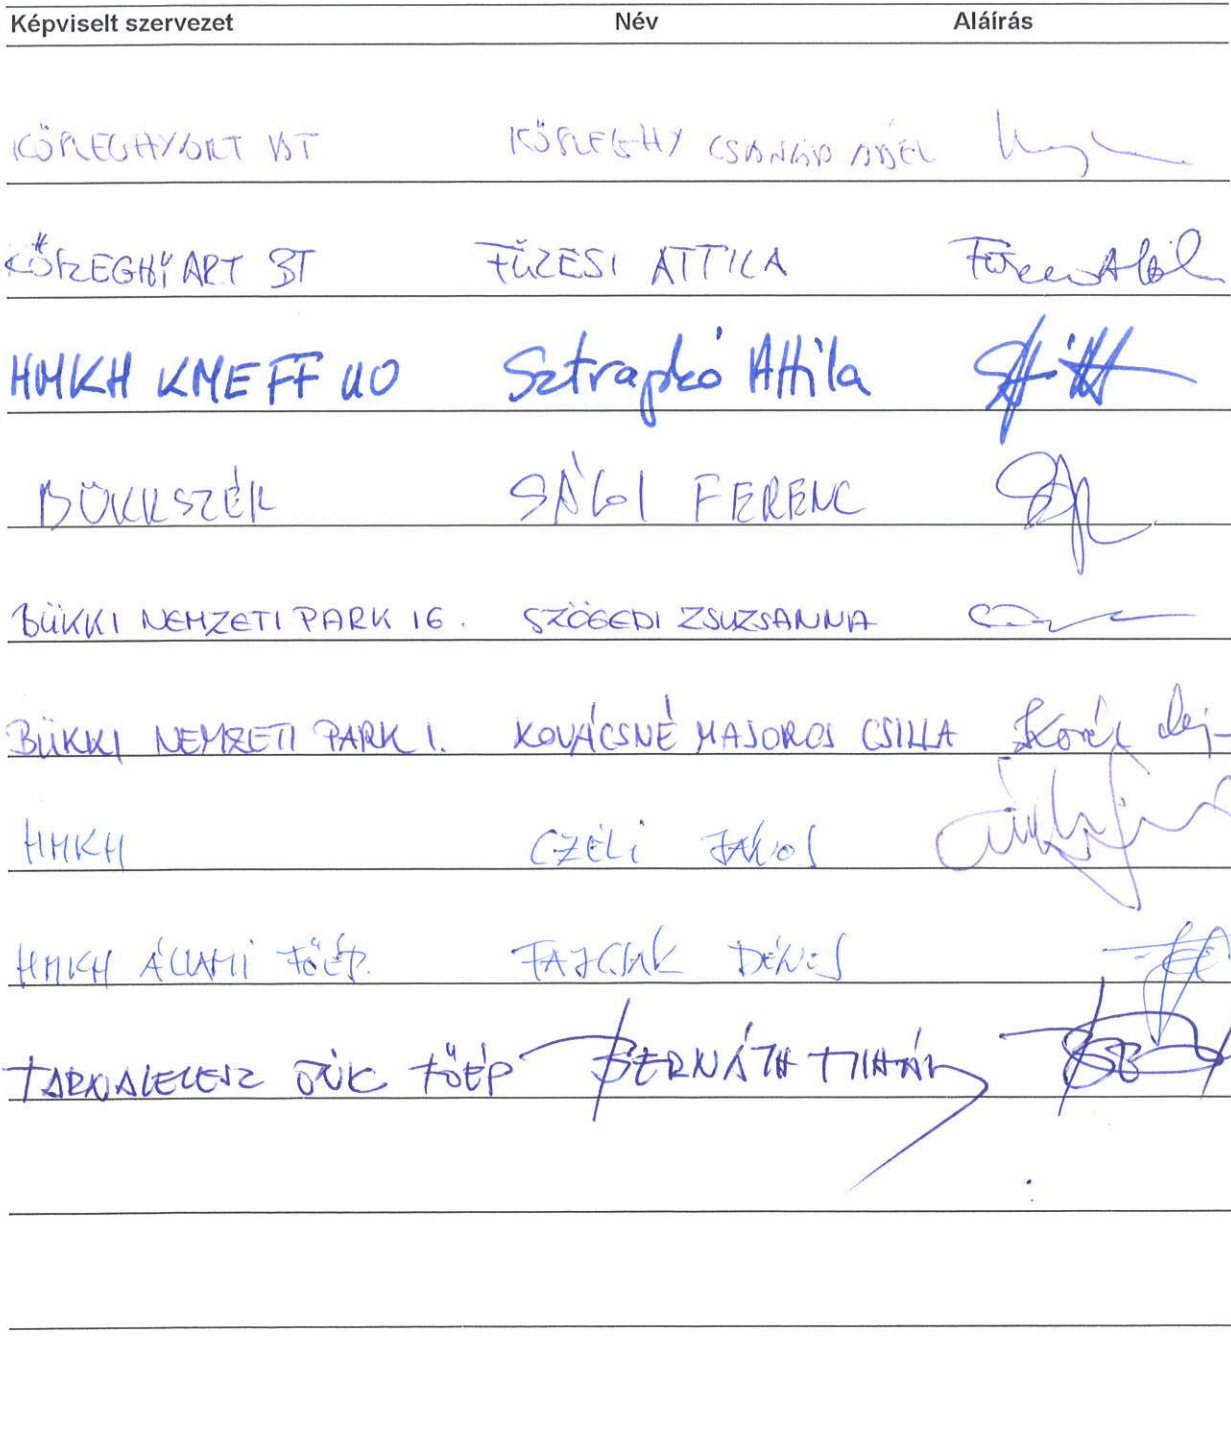 Képviselt szervezet Név Aláírás
KŐSZEGHYART BT KŐSZEGHY CSANÁD ÁBEL
KŐSZEGHY ART BT FŰZESI ATTILA
HMKH KMEFF UO Sztrapkó Attila
BÜKKSZÉK SÁGI FERENC
BÜKKI NEMZETI PARK IG. SZÖGEDI ZSUZSANNA
BÜKKI NEMZETI PARK I. KOVÁCSNÉ MAJOROS CSILLA
HMKH CZÉLI JÁNOS
HMKH ÁLLAMI FŐÉP. FAJCSÁK DÉNES
TARNALELESZ FŐÉP BERNÁTH MIHÁLY